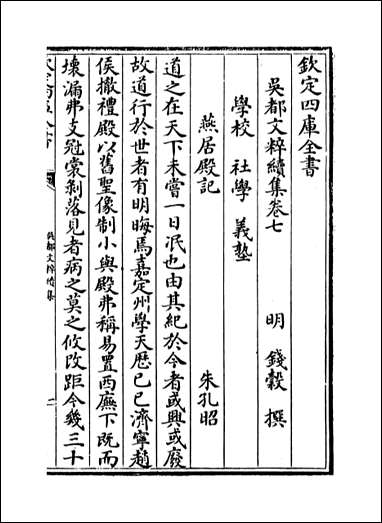 欽定四庫全書
吳都文粹續集卷七
明 錢穀 撰
學校 社學 義塾
燕居殿記
朱孔昭
道之在天下未嘗一日泯也由其紀於今者或興或廢
故道行於世者有明晦焉嘉定州學天歴己巳濟寧趙
侯撤禮殿以舊聖像制小與殿弗稱易置西廡下既而
壞漏弗支冠裳剥落見者病之莫之攸改距今幾三十
吳都文粹續集